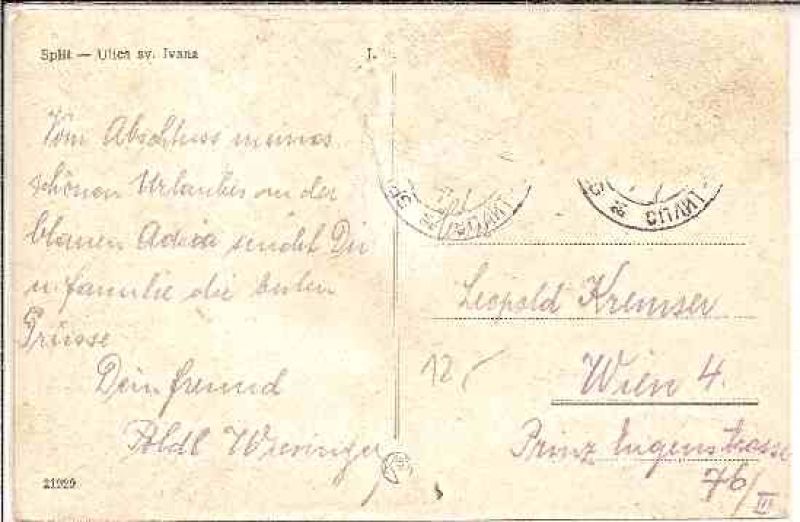 Split — Ulica sv. Ivana
Vom Abschluss meines
schönen Urlaubes an der
blauen Adria sendet Dir
u. familie die besten
Grüsse
Dein freund
Poldl Wieninger
21929
Leopold Kremser
12
Wien 4.
Prinz Eugenstrasse
76/III